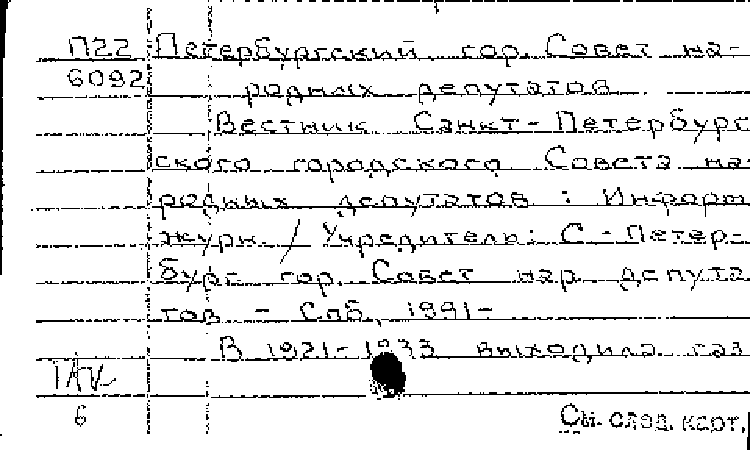 П22 Петербургский гор. Совет на-
6092 родных депутатов
Вестник Санкт-Петербург
ского городского Совета на-
родных депутатов : Информ
журн. / Учредитель: С.-Петер-
бург гор. Совет нар депута
тов - Спб., 1991-
В 1921-1933 выходила газ
6
См. след. карт.